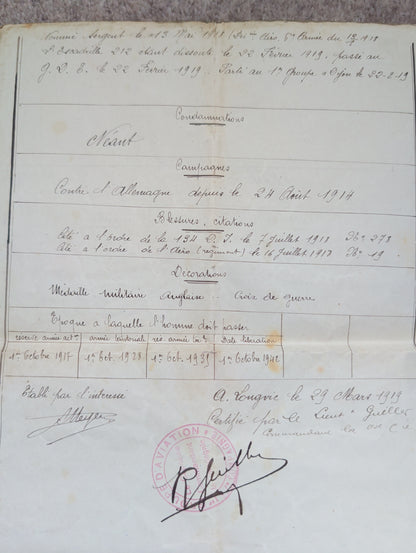 Nommé Sergent le 13 Mai 1918 Aéro, 5e Armée du
L'Escadrille 212 étant dissoute le 22 Février 1919, passe au
G. D. E. le 22 Février 1919. Parti au 1er Groupe Dijon le 22-2-19
Condamnations
Néant
Campagnes
Contre l'Allemagne depuis le 24 Août 1914
Blessures, citations
Cité à l'ordre de la 134 D. I. le 7 Juillet 1918 No 273
Cité à l'ordre de l'Aéro (régiment) le 16 Juillet 1918 No 19
Décorations
Médaille militaire Anglaise. Croix de guerre
Epoque à laquelle l'homme doit passer
réserve armée act. armée territoriale rés. armée ter. Date libération
1er Octobre 1915 1er Oct. 1928 1er Oct. 1935 1er Octobre 1942
Établi par l'intéressé
A Longvic le 29 Mars 1919
Certifié par le Lieut.
Commandant la Cie
D'AVIATION